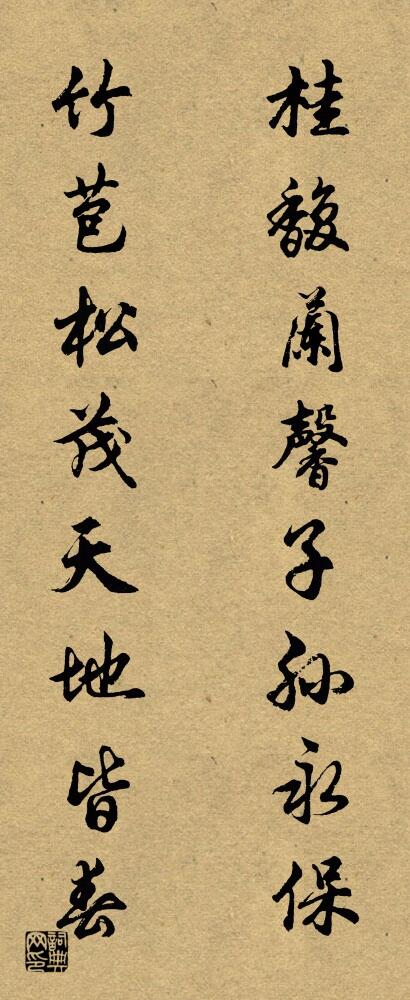 桂馥蘭馨子孙永保
竹苞松茂天地皆春
词典网印